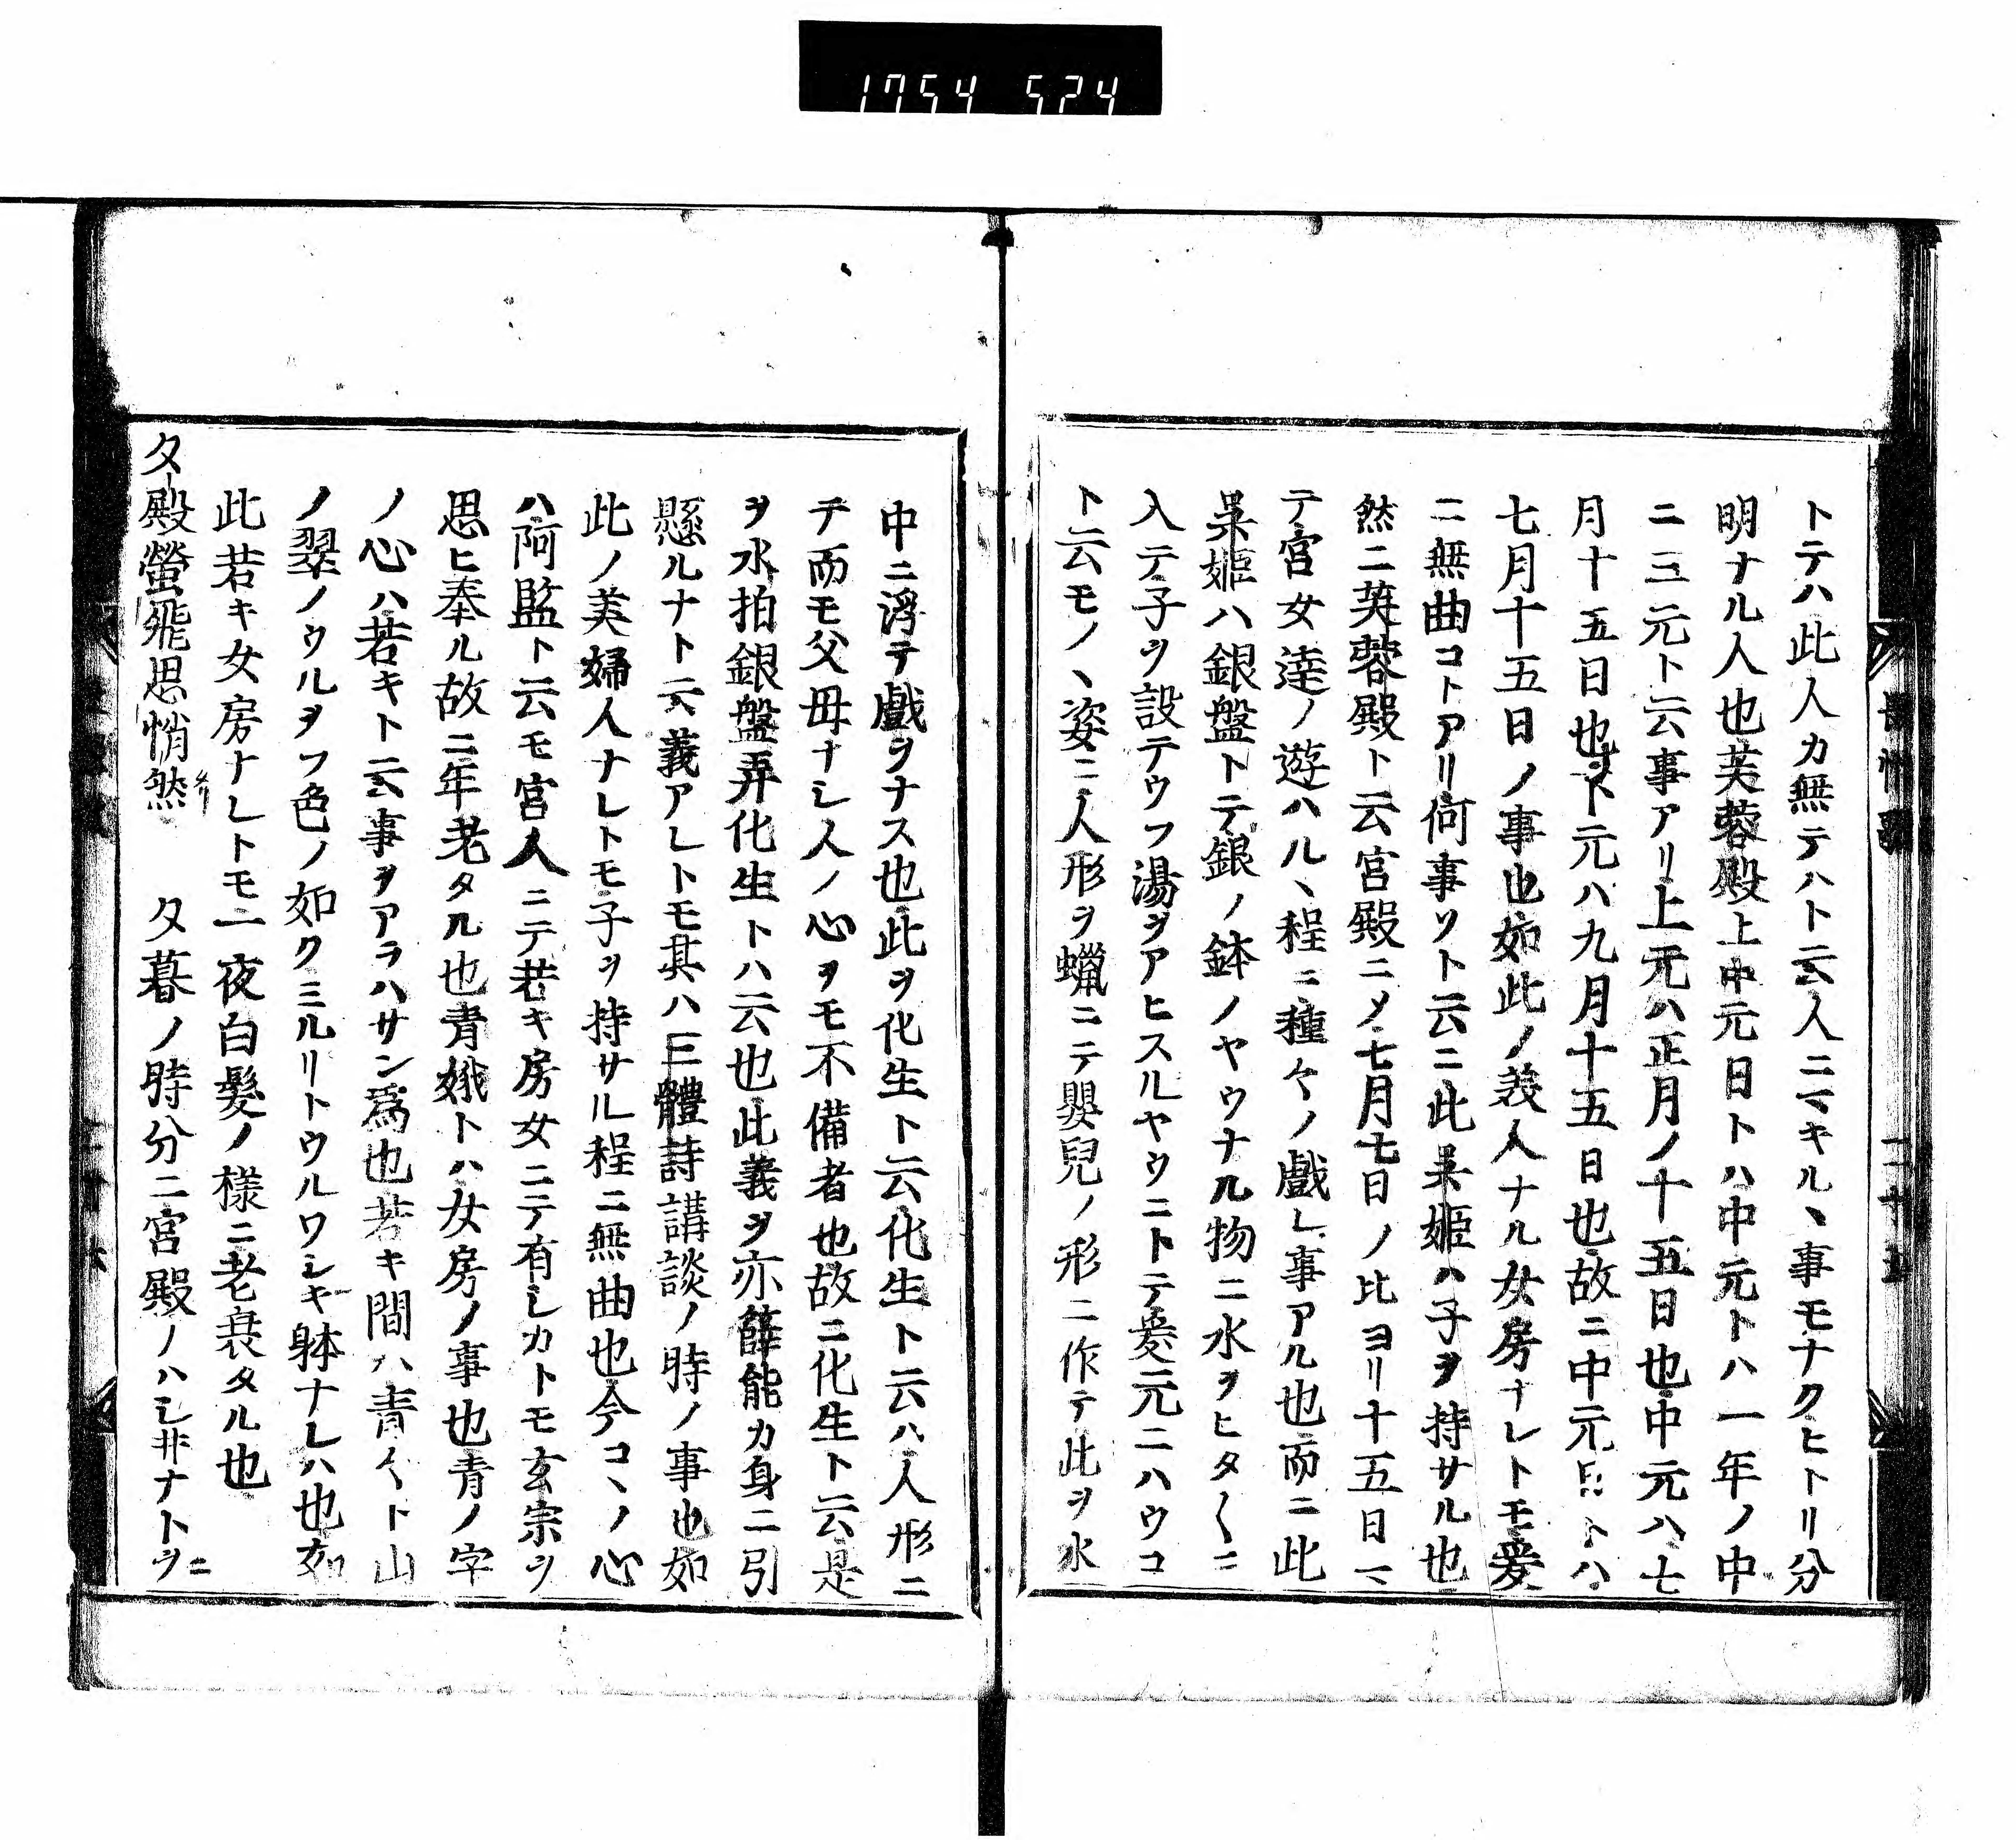 1754 524
トテハ此人カ無テハト云人ニマキルヽ事モナクヒトリ分
明ナル人也芙蓉殿上中元日トハ中元トハ一年ノ中
ニ三元ト云事アリ上元ハ正月ノ十五日也中元ハ七
月十五日也下元ハ九月十五日也故ニ中元日トハ
七月十五日ノ事也如此ノ義人ナル女房ナレトモ爰
ニ無曲コトアリ何事ソト云ニ此呉姫ハ子ヲ持サル也
然ニ芙蓉殿ト云宮殿ニメ七月七日ノ比ヨリ十五日マ
テ宮女達ノ遊ハルヽ程ニ種々ノ戯レ事アル也而ニ此
呉姫ハ銀盤トテ銀ノ鉢ノヤウナル物ニ水ヲヒタ〱ニ
入テ子ヲ設テウフ湯ヲアヒスルヤウニトテ爰元ニハウコ
ト云モノヽ姿ニ人形ヲ蠟ニテ嬰兒ノ形ニ作テ此ヲ水
中ニ浮テ戯ヲナス也此ヲ化生ト云化生ト云ハ人形ニ
テ而モ父母ナシ人ノ心ヲモ不備者也故ニ化生ト云是
ヲ水拍銀盤弄化生トハ云也此義ヲ亦薛能カ身ニ引
懸ルナト云義アレトモ其ハ三體詩講談ノ時ノ事也如
此ノ美婦人ナレトモ子ヲ持サル程ニ無曲也今コヽノ心
ハ阿監ト云モ宮人ニテ若キ房女ニテ有シカトモ玄宗ヲ
思ヒ奉ル故ニ年老タル也青娥トハ女房ノ事也青ノ字
ノ心ハ若キト云事ヲアラハサン爲也若キ間ハ青々ト山
ノ翠ノウルヲフ色ノ如クミルリトウルワシキ躰ナレハ也如
此若キ女房ナレトモ一夜白髮ノ樣ニ老衰タル也
夕殿螢飛思悄然　夕暮ノ時分ニ宮殿ノハシ井ナトヲ